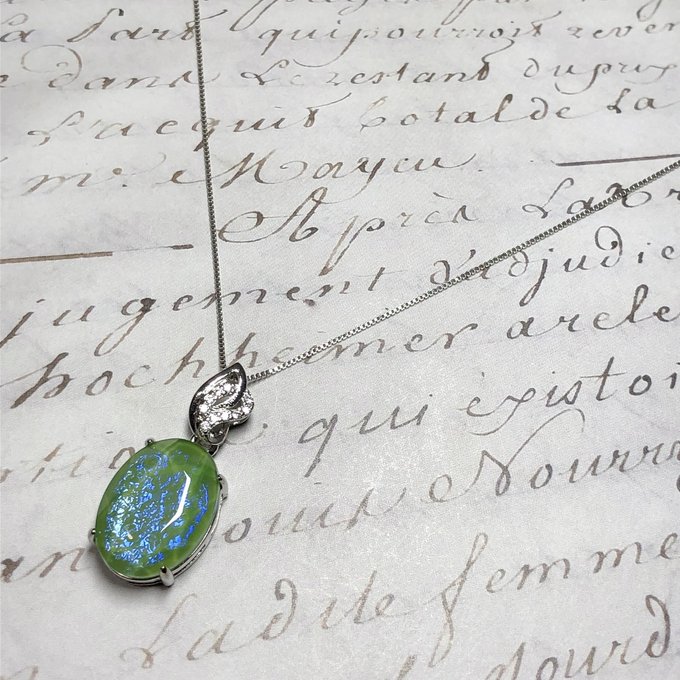 La Part qui pourroit reven
dans Le restant dupris
L'acquit totalde La
me. Mayeu
Après La
jugement d'adjudic
hochheimer arele
qui existoi
Louis Nourr
Ladite femme
Nourd